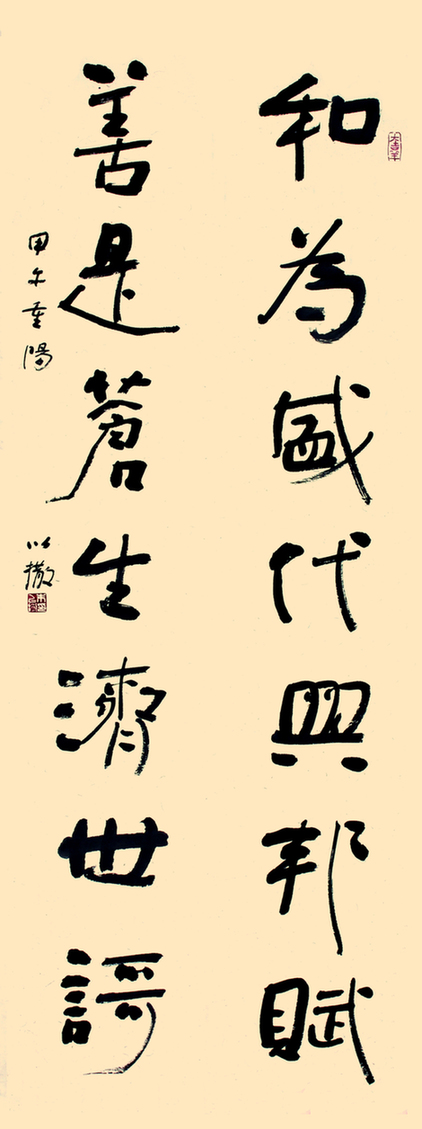 和為盛代興邦賦
善是蒼生濟世謌
甲午重陽
以撒